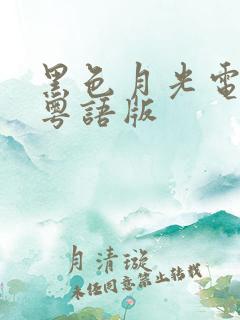 黑色月光電
粵語版
月清璇
未经同意禁止转载